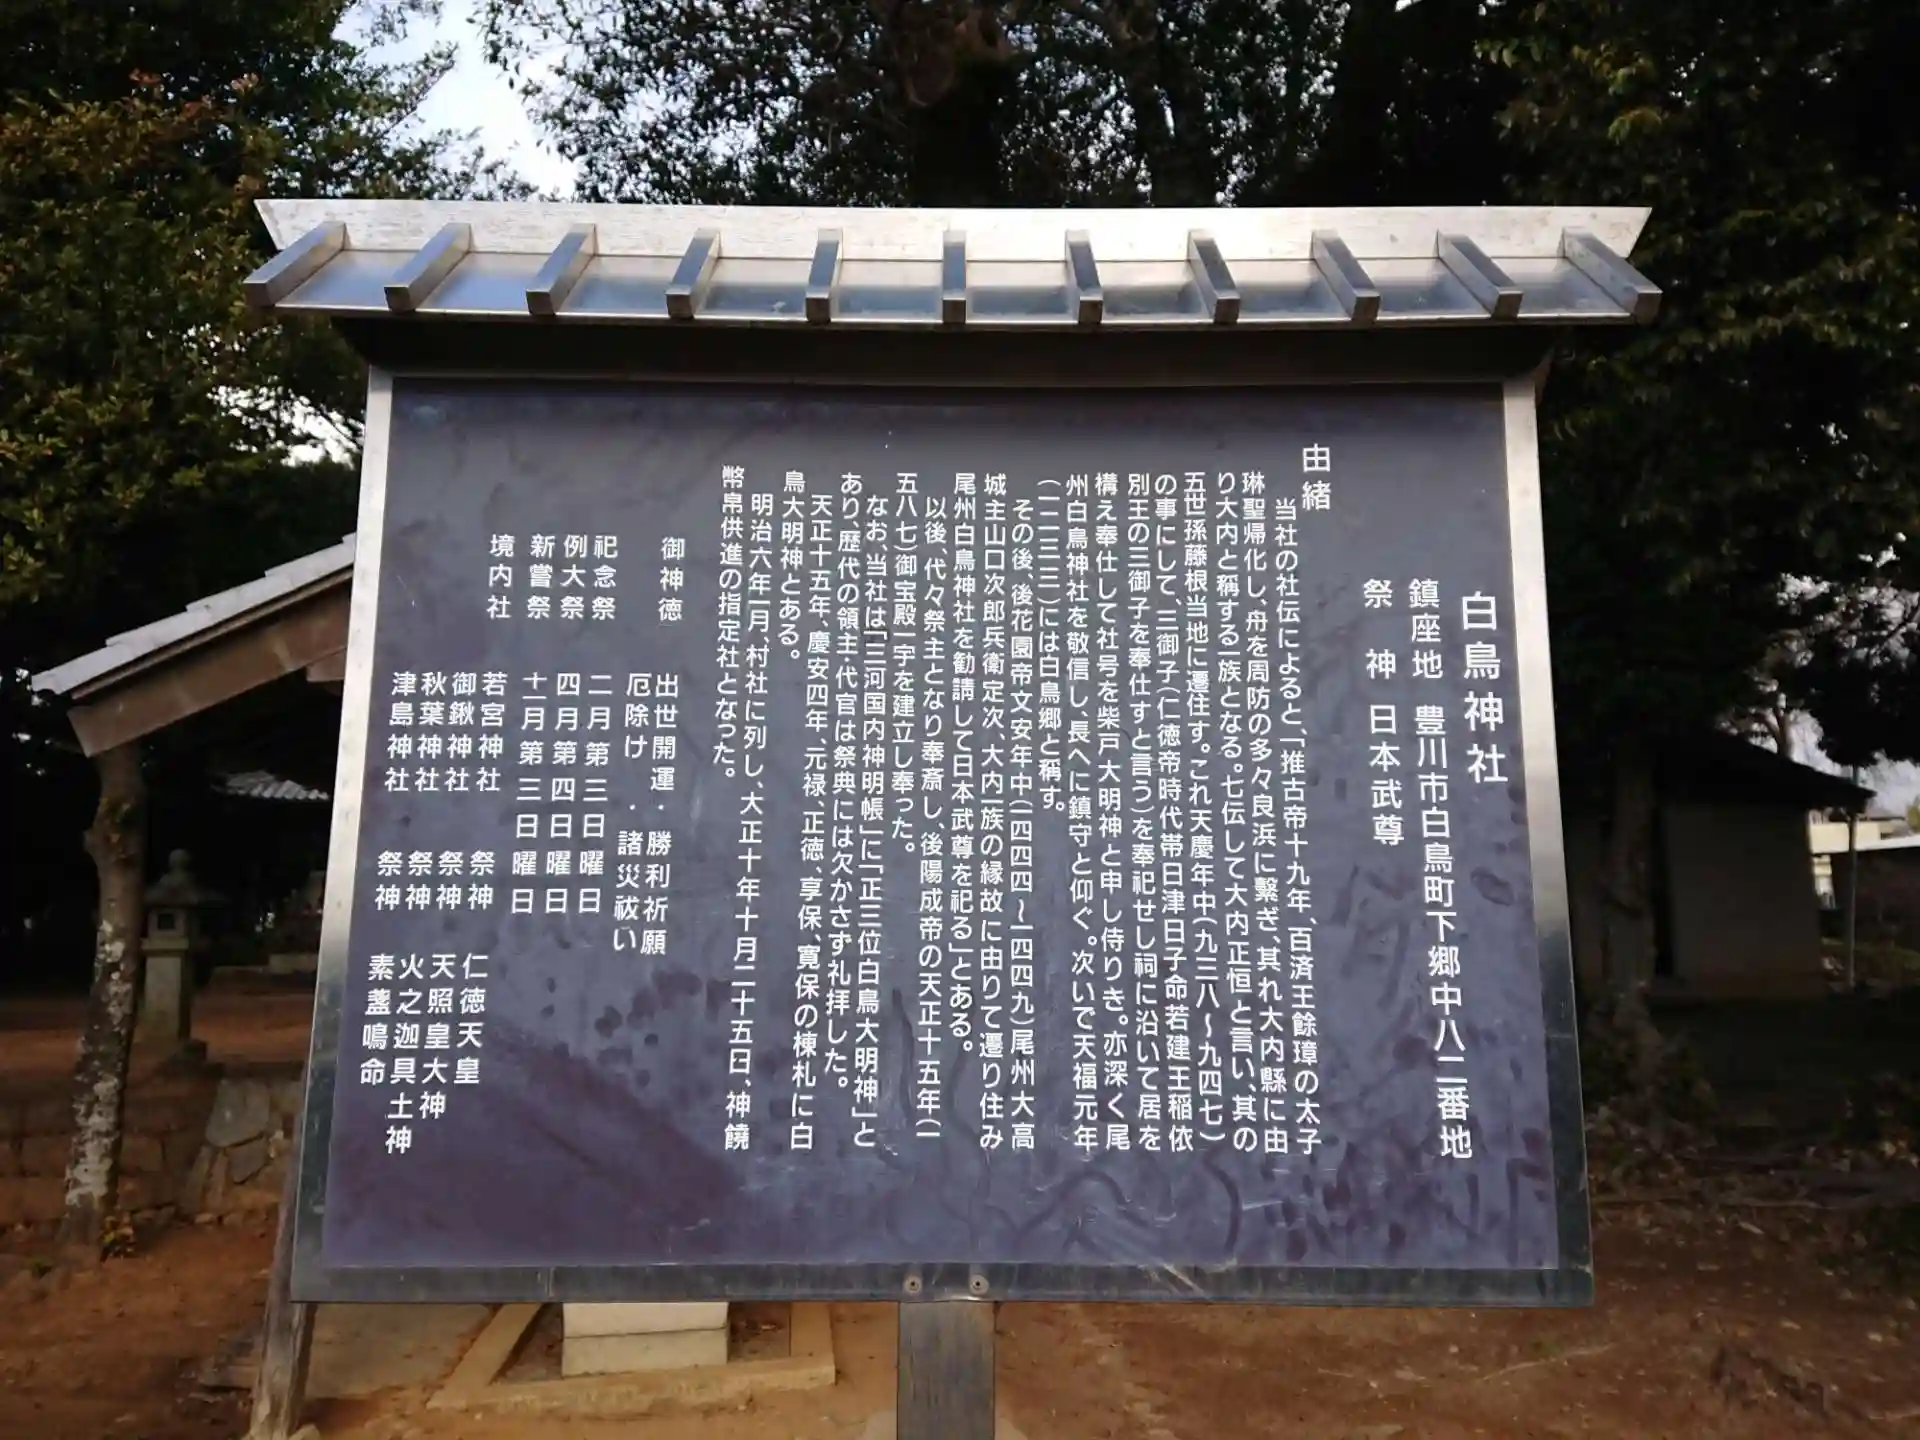 白鳥神社
鎮座地 豊川市白鳥町下郷中八二番地
祭神 日本武尊
由緒
当社の社伝によると、「推古帝十九年、百済王餘璋の太子
琳聖帰化し、舟を周防の多々良浜に繋ぎ、其れ大内縣に由
り大内と稱する一族となる。七伝して大内正恒と言い、其の
五世孫藤根当地に遷住す。これ天慶年中(九三八~九四七)
の事にして、三御子(仁徳帝時代帯日津日子命若建王稲依
別王の三御子を奉仕すと言う)を奉祀せし祠に沿いて居を
構え奉仕して社号を柴戸大明神と申し侍りき。亦深く尾
州白鳥神社を敬信し、長へに鎮守と仰ぐ。次いで天福元年
(一二三三)には白鳥郷と稱す。
その後、後花園帝文安年中(一四四四~一四四九)尾州大高
城主山口次郎兵衛定次、大内一族の縁故に由りて遷り住み
尾州白鳥神社を勧請して日本武尊を祀る」とある。
以後、代々祭主となり奉斎し、後陽成帝の天正十五年(一
五八七)御宝殿一宇を建立し奉った。
なお、当社は「三河国内神明帳」に「正三位白鳥大明神」と
あり、歴代の領主・代官は祭典には欠かさず礼拝した。
天正十五年、慶安四年、元禄、正徳、享保、寛保の棟札に白
鳥大明神とある。
明治六年一月、村社に列し、大正十年十月二十五日、神饒
幣帛供進の指定社となった。
御神徳 出世開運・勝利祈願
厄除け・諸災祓い
祀念祭 二月第三日曜日
例大祭 四月第四日曜日
新嘗祭 十一月第三日曜日
境内社 若宮神社 祭神 仁徳天皇
御鍬神社 祭神 天照皇大神
秋葉神社 祭神 火之迦具土神
津島神社 祭神 素盞鳴命